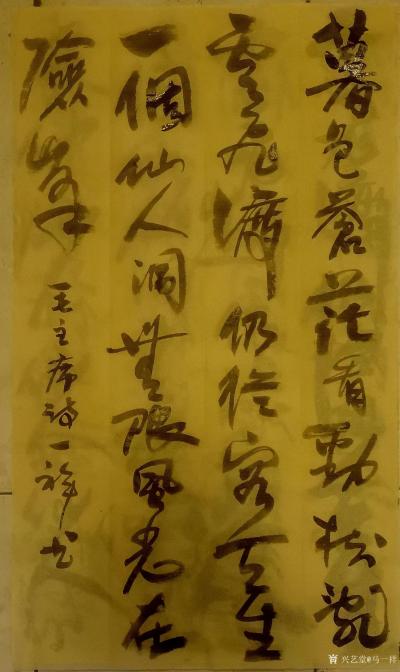 暮色蒼茫看勁松亂
雲飛渡仍從容天生
一個仙人洞無限風光在
險峯
毛主席詩一祥书
兴艺堂@马一祥